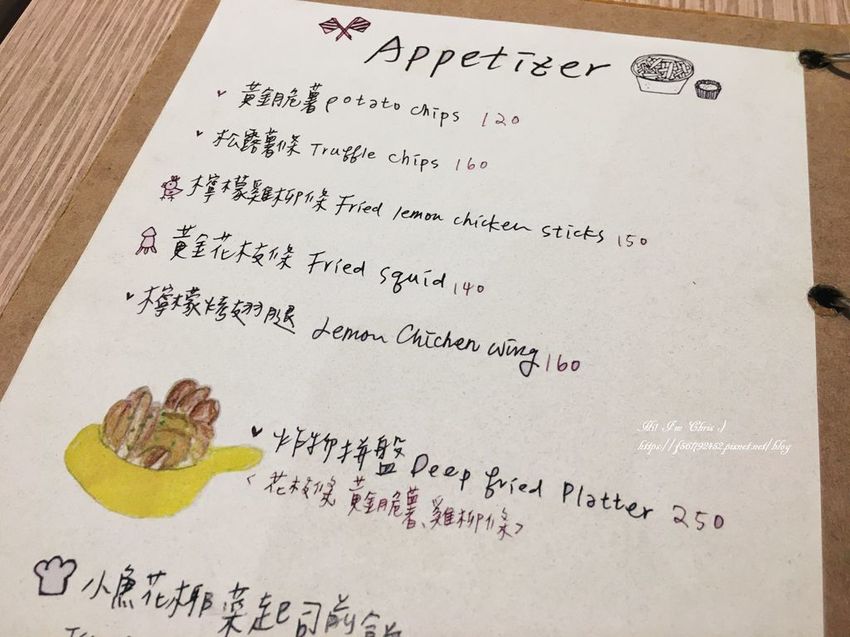 Appetizer
黃金脆薯 potato chips 120
松露薯條 Truffle chips 160
檸檬雞柳條 Fried lemon chicken sticks 150
黃金花枝條 Fried squid 140
檸檬烤翅腿 Lemon Chichen wing 160
炸物拼盤 Deep fried Platter 250
(花枝條 黃金脆薯、雞柳條)
Hi! I'm Chris :)
https://f561792452.pixnet.net/blog
小魚花椰菜起司煎餅